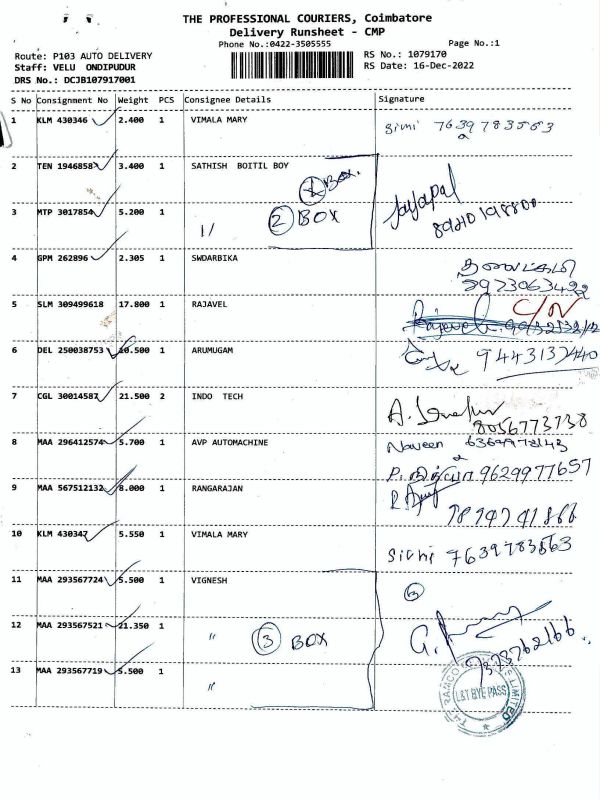 THE PROFESSIONAL COURIERS, Coimbatore
Delivery Runsheet - CMP
Phone No.:0422-3505555 Page No.:1
Route: P103 AUTO DELIVERY RS No.: 1079170
Staff: VELU ONDIPUDUR RS Date: 16-Dec-2022
DRS No.: DCJB107917001
S No Consignment No Weight PCS Consignee Details Signature
1 KLM 430346 2.400 1 VIMALA MARY 7639783563
2 TEN 1946858 3.400 1 SATHISH BOITIL BOY
BOX.
Jayapal
3 MTP 3017854 5.200 1 2 BOX
4 GPM 262896 2.305 1 SWDARBIKA
5 SLM 309499618 17.800 1 RAJAVEL C/N
6 DEL 250038753 10.500 1 ARUMUGAM 9443132440
7 CGL 30014587 21.500 2 INDO TECH
8056773738
8 MAA 296412574 5.700 1 AVP AUTOMACHINE Naveen
9629977657
9 MAA 567512132 8.000 1 RANGARAJAN
10 KLM 430347 5.550 1 VIMALA MARY 7639783563
11 MAA 293567724 5.500 1 VIGNESH 3
12 MAA 293567521 21.350 1 " 3 BOX
13 MAA 293567719 5.500 1 "
L&T BYE PASS